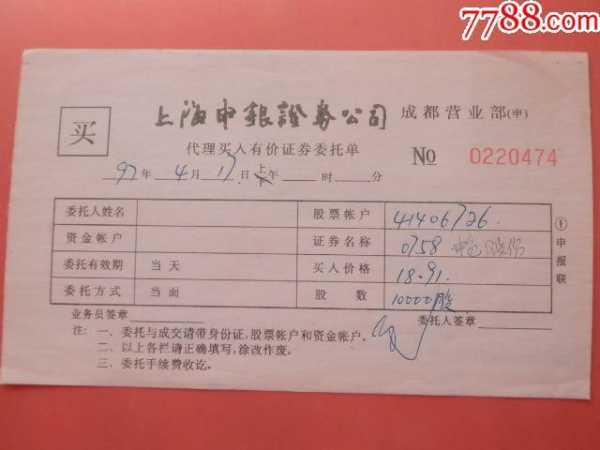 7788.com
买
上海申银證券公司 成都营业部(申)
代理买入有价证券委托单 No 0220474
97年 4月 17日 上午 下 时 分
委托人姓名 股票帐户 41406726
资金帐户 证券名称 0758 中色股份
委托有效期 当天 买入价格 18.91.
委托方式 当面 股数 10000股
①申报联
业务员签章 委托人签章
注: 一、委托与成交请带身份证,股票帐户和资金帐户。
二、以上各栏请正确填写,涂改作废。
三、委托手续费收讫。